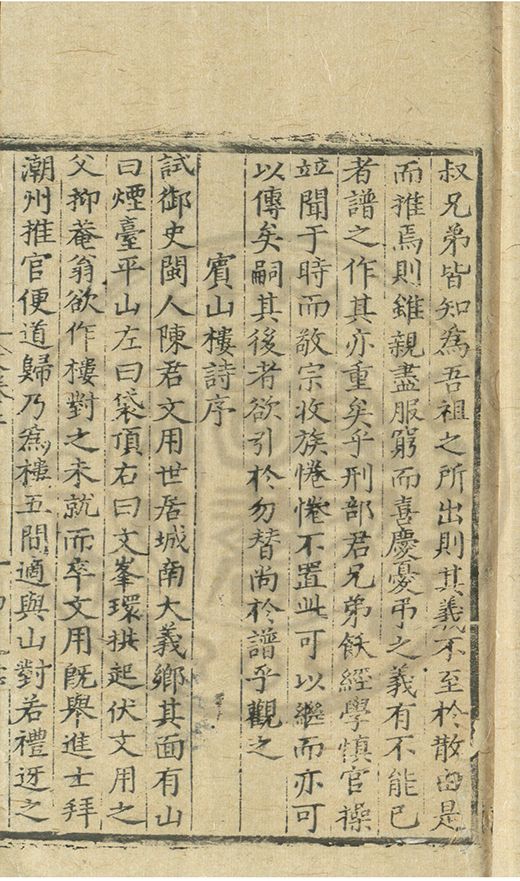 叔兄弟皆知為吾祖之所出則其義不至於散由是
而推焉則雖親盡服窮而喜慶憂弔之義有不能已
者譜之作其亦重矣乎刑部君兄弟飫經學慎官操
竝聞于時而敬宗收族惓惓不置此可以繼而亦可
以傳矣嗣其後者欲引於勿替尚於譜乎觀之
賓山樓詩序
試御史閩人陳君文用世居城南大義鄉其面有山
曰煙臺平山左曰袋頂右曰文峯環拱起伏文用之
父抑菴翁欲作樓對之未就而卒文用既舉進士拜
潮州推官便道歸乃為樓五間適與山對若禮迓之